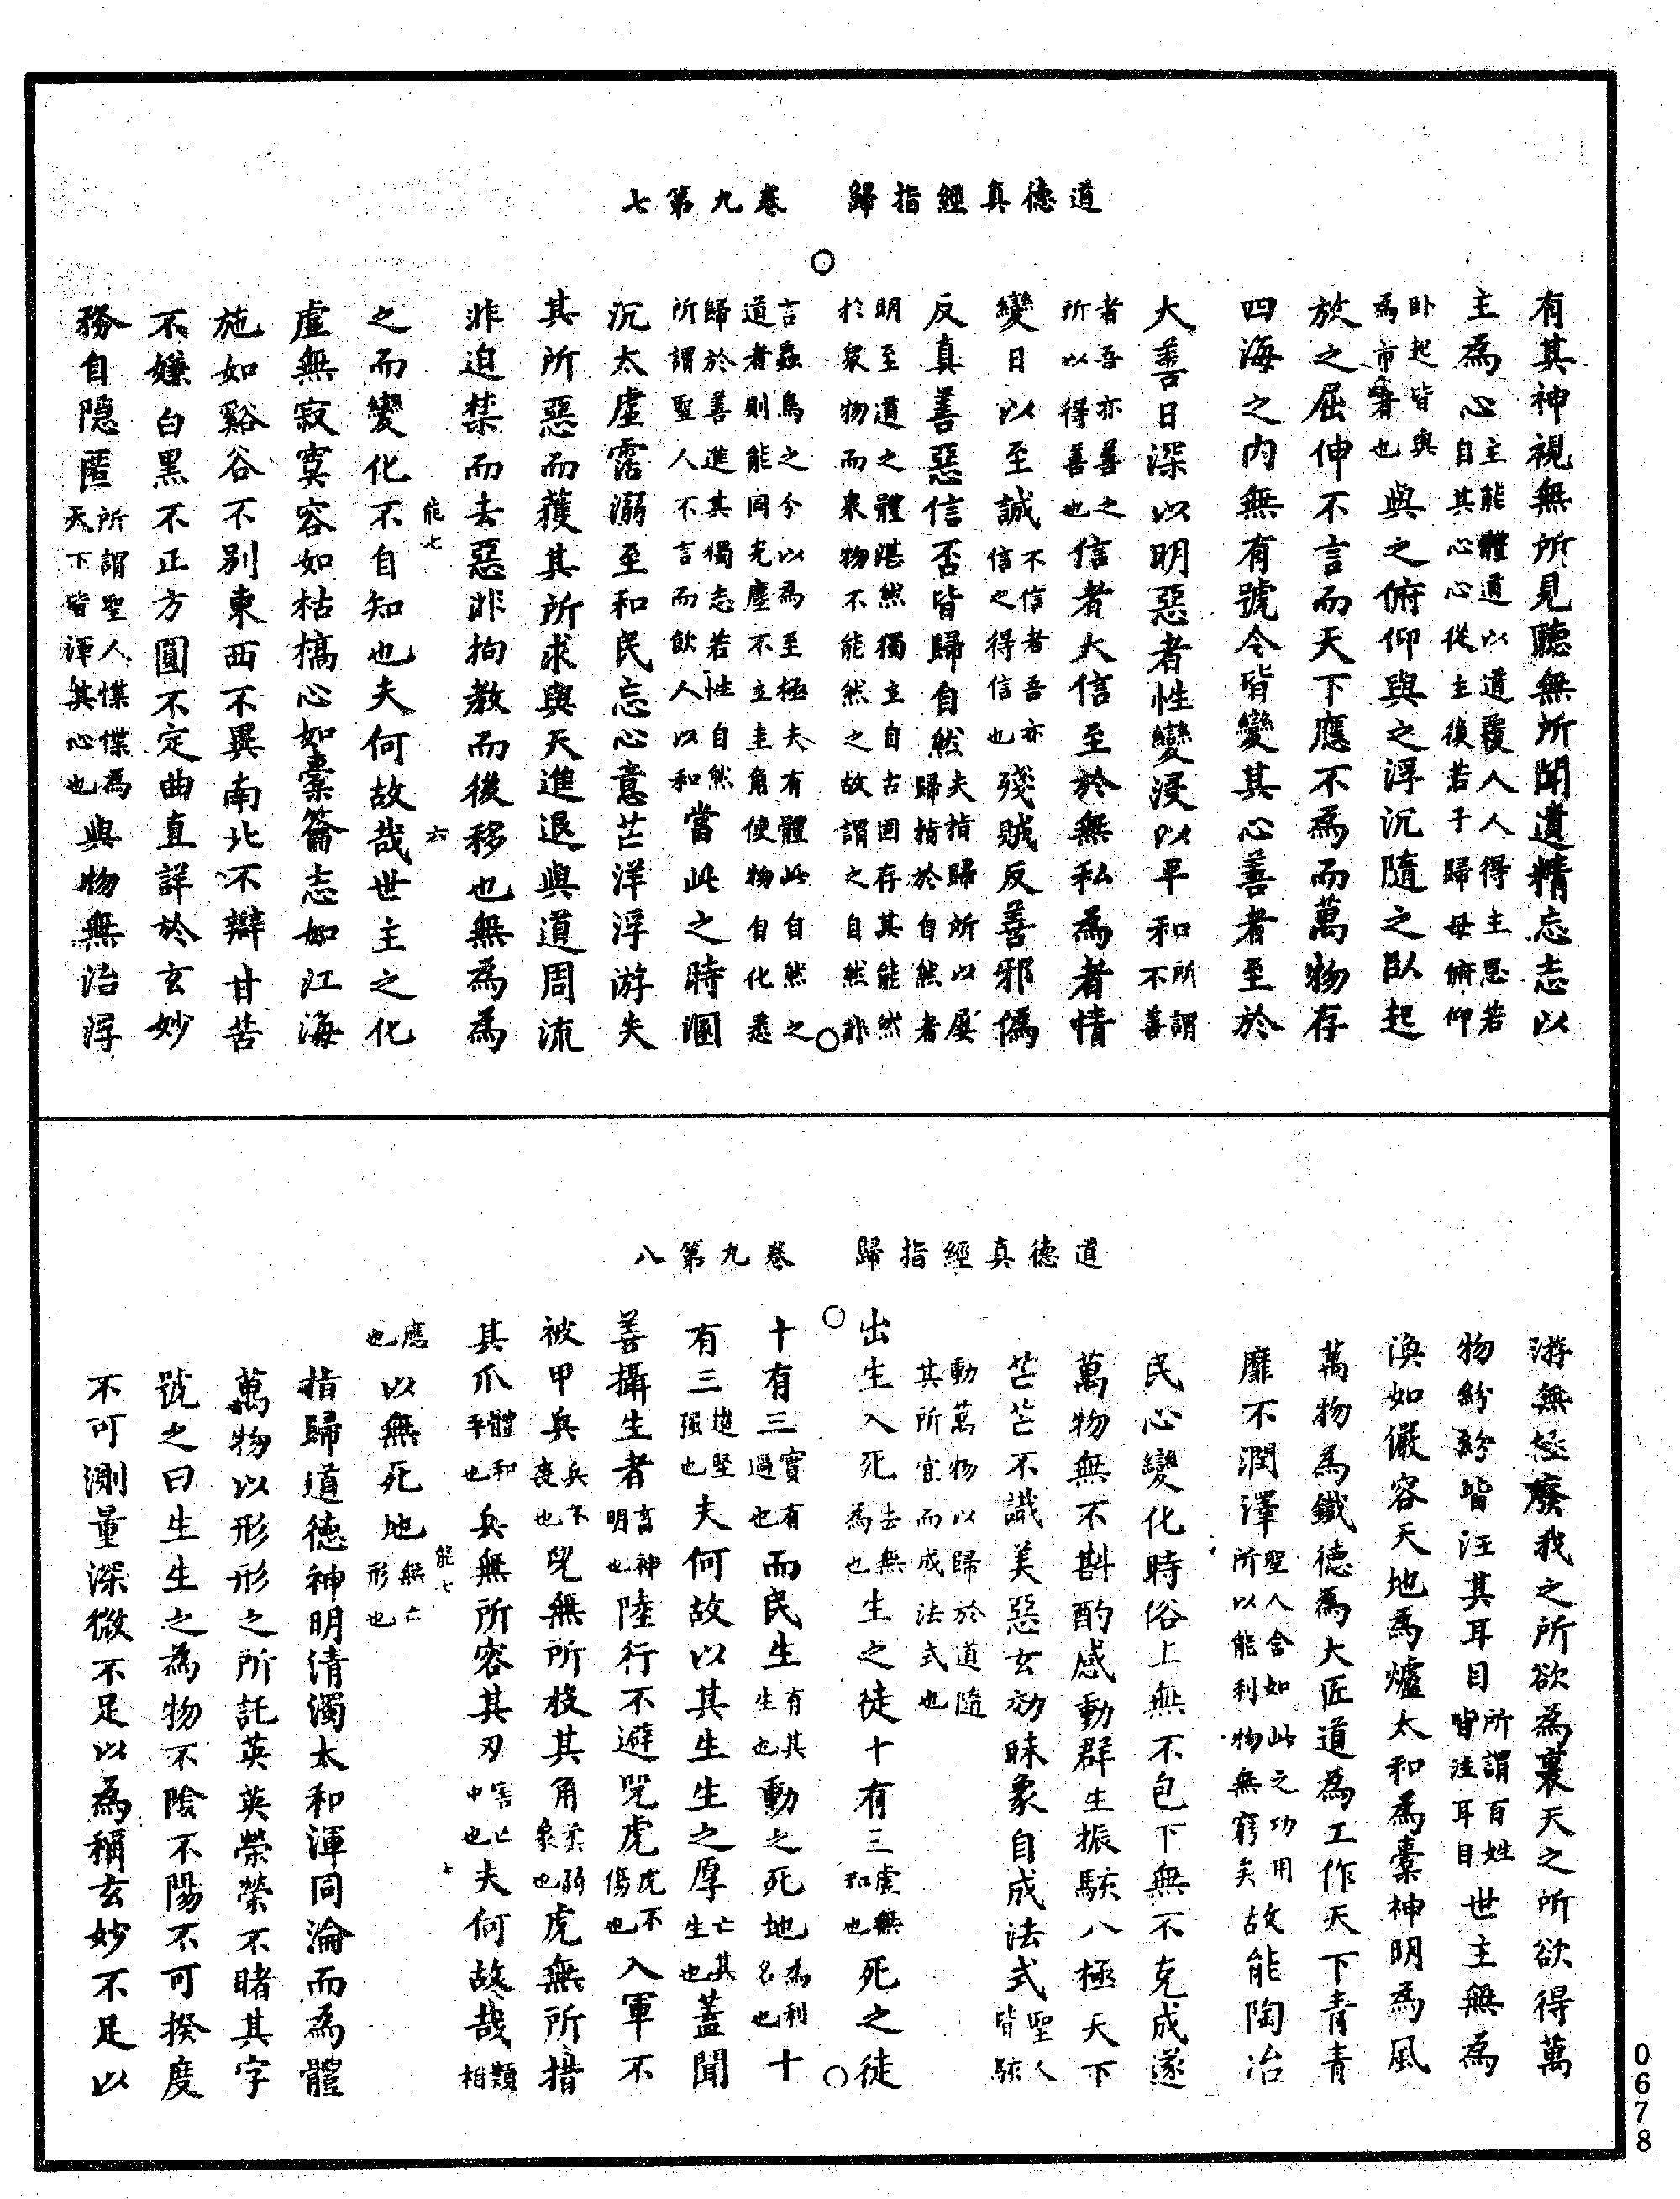 道德真經指歸　卷九第七
有其神視無所見聽無所聞遺精忘志以
主為心主能體道以道覆人人得主思若自其心心從主後若子歸母俯仰
臥起皆與為市者也與之俯仰與之浮沉隨之臥起
放之屈伸不言而天下應不為而萬物存
四海之內無有號令皆變其心善者至於
大善日深以明惡者性變浸以平和所謂不善
者吾亦善之所以得善也信者大信至於無私為者情
變日以至誠不信者吾亦信之得信也殘賊反善邪偽
反真善惡信否皆歸自然夫指歸所以屢歸指於自然者
明至道之體湛然獨立自古固存其能然於眾物而眾物不能然之故謂之自然非
言蟲鳥之今以為至極夫有體此自然之道者則能同光塵不立圭角使物自化悉
歸於善進其獨志若性自然所謂聖人不言而飲人以和當此之時溷
沉太虛霑溺至和民忘心意芒洋浮游失
其所惡而獲其所求與天進退與道周流
非迫禁而去惡非拘教而後移也無為為
之而變化不自知也夫何故哉世主之化
能七　六
虛無寂寞容如枯槁心如橐籥志如江海
施如谿谷不別東西不異南北不辯甘苦
不嫌白黑不正方圓不定曲直詳於玄妙
務自隱匿所謂聖人惵惵為天下皆渾其心也與物無治浮
道德真經指歸　卷九第八
游無極廢我之所欲為裏天之所欲得萬
物紛紛皆汪其耳目所謂百姓皆注耳目世主無為
渙如儼容天地為爐太和為橐神明為風
萬物為鐵德為大匠道為工作天下青青
靡不潤澤聖人含如此之功用所以能利物無窮矣故能陶冶
民心變化時俗上無不包下無不克成遂
萬物無不斟酌感動群生振駭八極天下
芒芒不識美惡玄効昧象自成法式聖人皆駭
動萬物以歸於道隨其所宜而成法式也
出生入死去無為也生之徒十有三虛無和也死之徒
十有三實有過也而民生有其生也動之死地為利名也十
有三堅强也夫何故以其生生之厚亡其生也蓋聞
善攝生者畜神明也陸行不避兕虎虎不傷也入軍不
被甲兵兵不喪也兕無所投其角柔弱也虎無所措
其爪體和平也兵無所容其刃害亡中也夫何故哉類相
應也以無死地無亡形也
能七　七
指歸道德神明清濁太和渾同淪而為體
萬物以形形之所託英英榮榮不睹其字
號之曰生生之為物不陰不陽不可揆度
不可測量深微不足以為稱玄妙不足以
0678